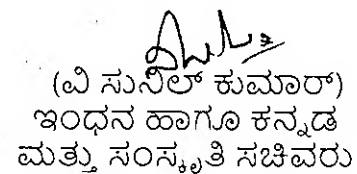 (ವಿ ಸುನಿಲ್ ಕುಮಾರ್)
ಇಂಧನ ಹಾಗೂ ಕನ್ನಡ
ಮತ್ತು ಸಂಸ್ಕೃತಿ ಸಚಿವರು